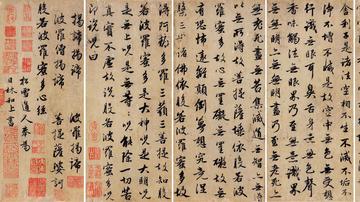 舍利子是諸法空相不生不滅不垢不
淨不增不減是故空中無色無受想
行識無眼耳鼻舌身意無色聲
香味觸法無眼界乃至無意識界
無無明亦無無明盡乃至無老死亦
無老死盡無苦集滅道無智亦無得
以無所得故菩提薩埵依般若波
羅蜜多故心無罣礙無罣礙故無
有恐怖遠離顛倒夢想究竟涅
槃三世諸佛依般若波羅蜜多故
得阿耨多羅三藐三菩提故知般若
波羅蜜多是大神咒是大明咒
是無上咒是無等等咒能除一切苦
真實不虛故說般若波羅蜜多咒
即說咒曰
揭諦揭諦 波羅揭諦
波羅僧揭諦 菩提薩婆訶
般若波羅蜜多心經
松雪道人奉為
日林和上書